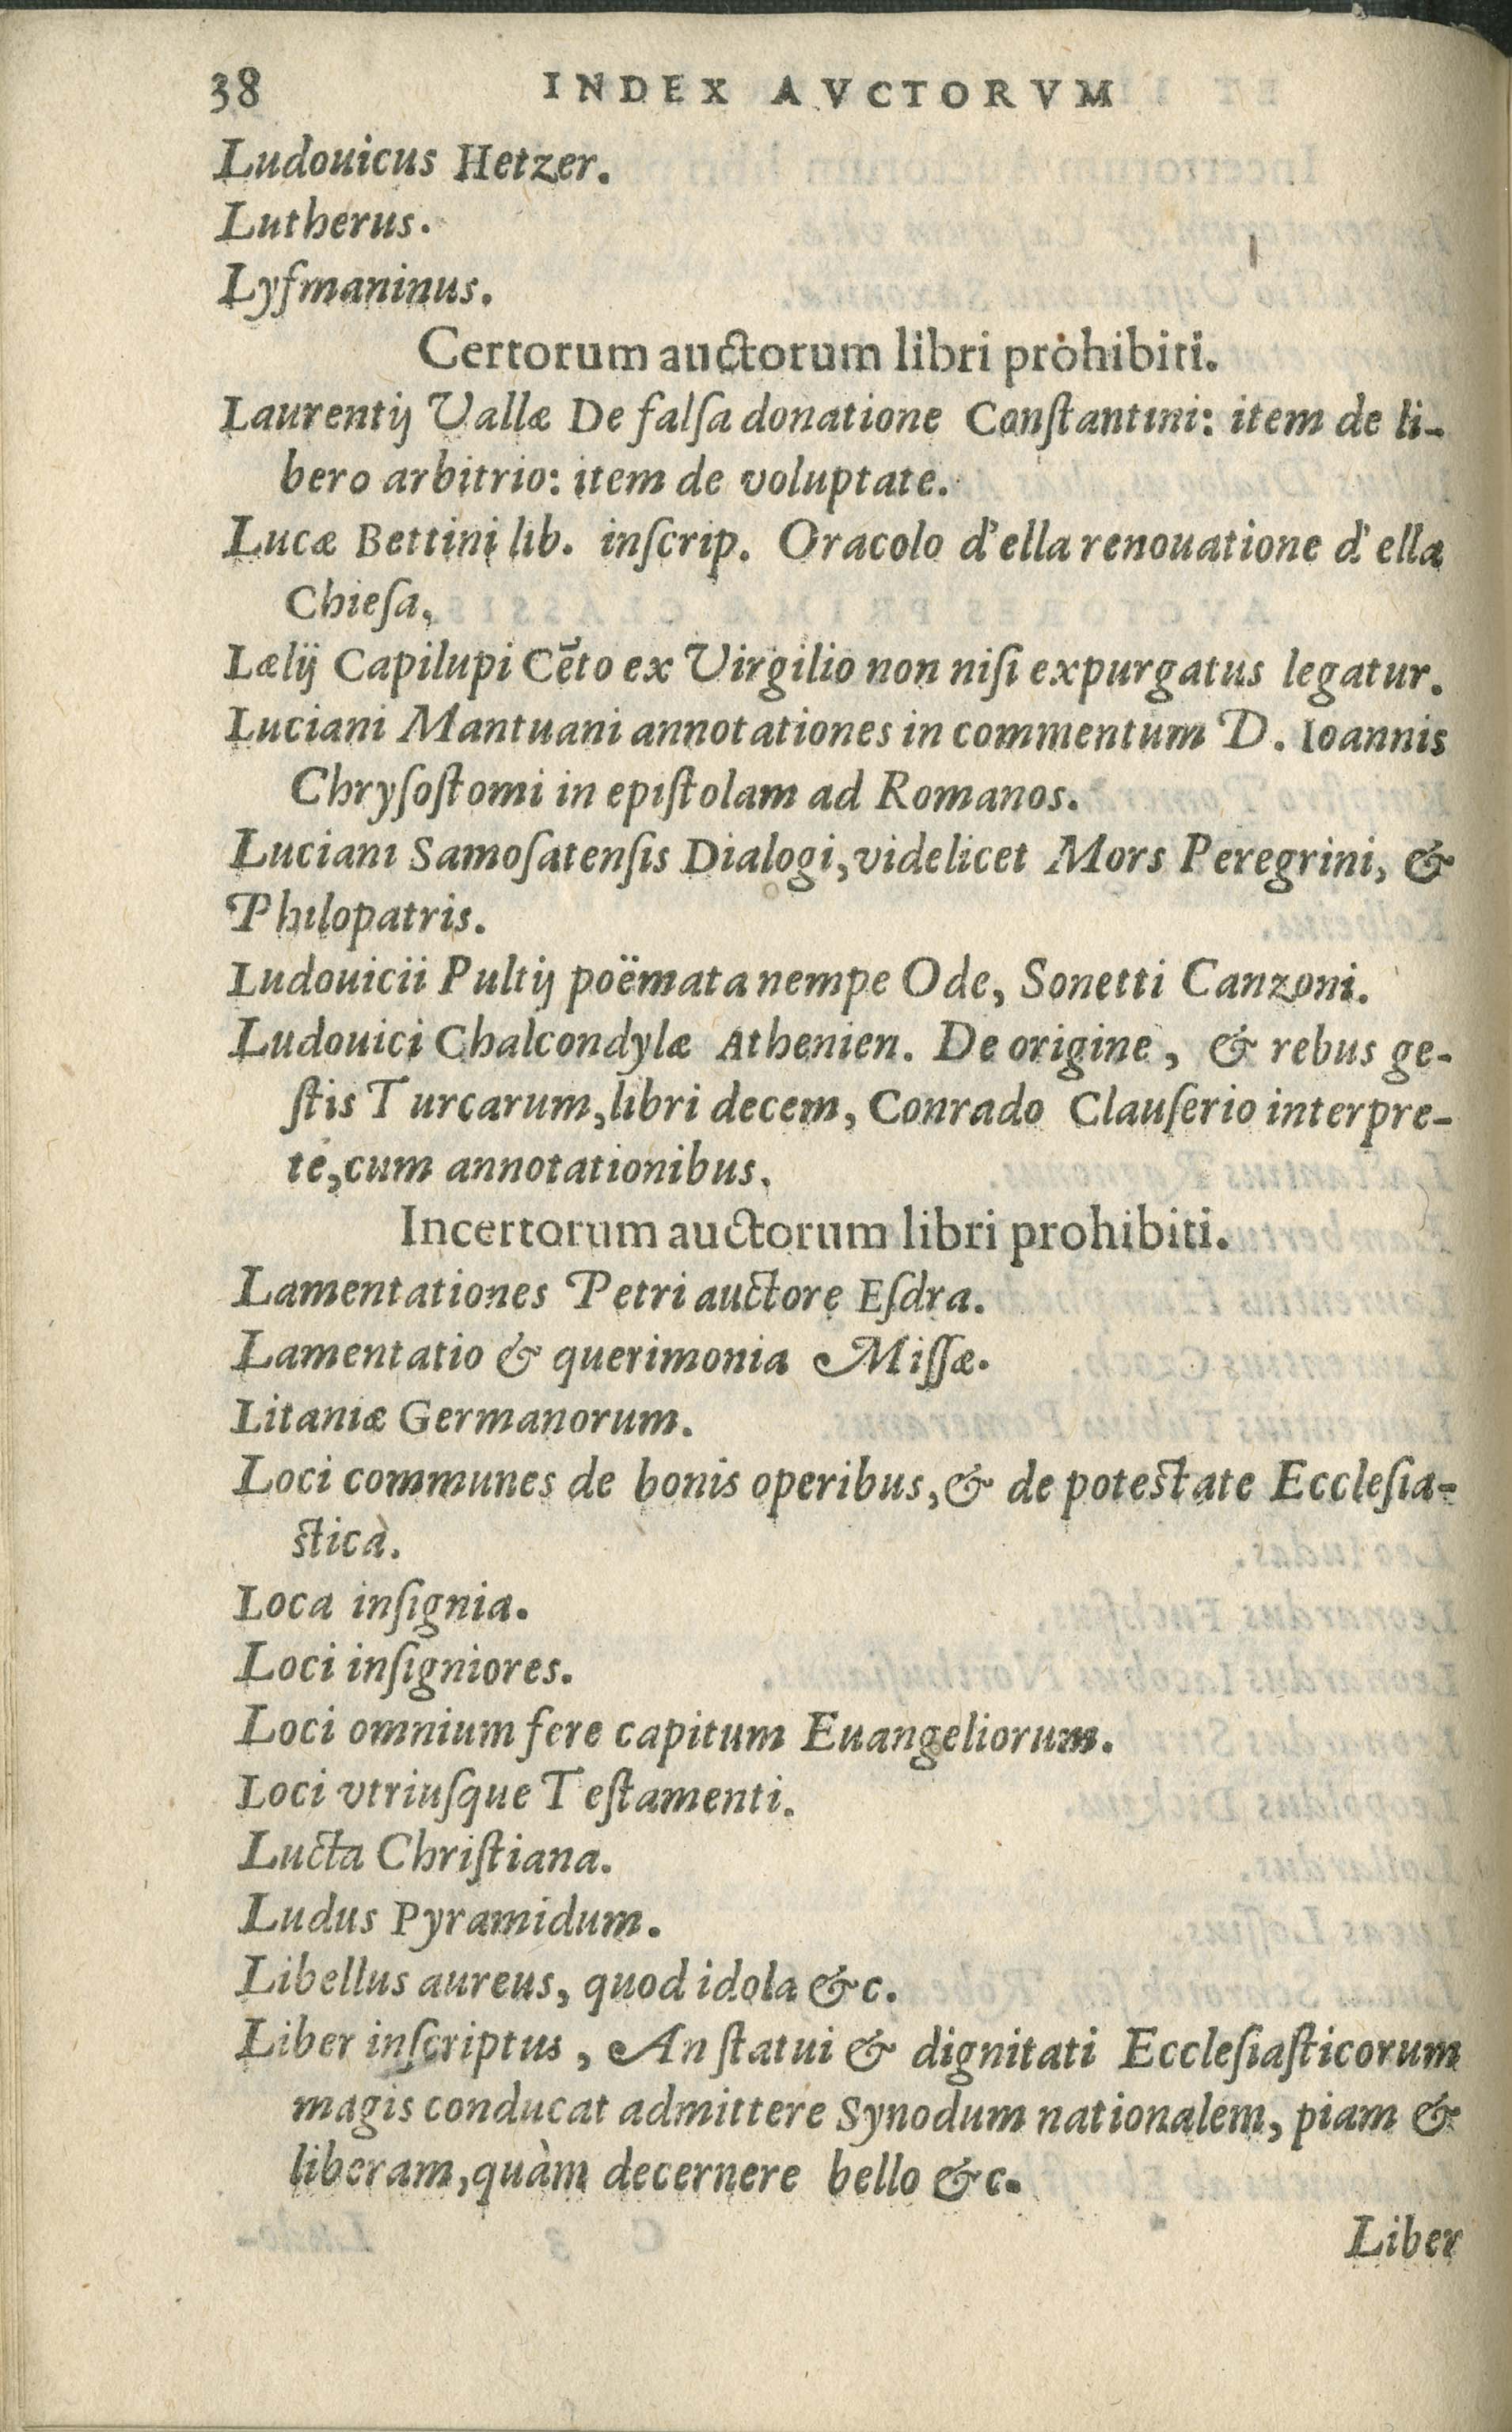 38 INDEX AVCTORVM
Ludouicus Hetzer.
Lutherus.
Lyſmaninus.
Certorum auctorum libri prohibiti.
Laurentij Vallæ De falſa donatione Conſtantini: item de li-
bero arbitrio: item de voluptate.
Lucæ Bettini lib. inſcrip. Oracolo d'ella renouatione d'ella
Chieſa,
Lælij Capilupi Cẽto ex Virgilio non niſi expurgatus legatur.
Luciani Mantuani annotationes in commentum D. Ioannis
Chryſoſtomi in epiſtolam ad Romanos.
Luciani Samoſatenſis Dialogi, videlicet Mors Peregrini, &
Philopatris.
Ludouicii Pultij poëmata nempe Ode, Sonetti Canzoni.
Ludouici Chalcondylæ Athenien. De origine, & rebus ge-
ſtis Turcarum, libri decem, Conrado Clauſerio interpre-
te, cum annotationibus.
Incertorum auctorum libri prohibiti.
Lamentationes Petri auctore Eſdra.
Lamentatio & querimonia Miſſæ.
Litaniæ Germanorum.
Loci communes de bonis operibus, & de poteſtate Eccleſia-
ſticà.
Loca inſignia.
Loci inſigniores.
Loci omnium fere capitum Euangeliorum.
Loci vtriuſque Teſtamenti.
Lucta Chriſtiana.
Ludus Pyramidum.
Libellus aureus, quod idola &c.
Liber inſcriptus, An ſtatui & dignitati Eccleſiaſticorum
magis conducat admittere Synodum nationalem, piam &
liberam, quàm decernere bello &c.
Liber